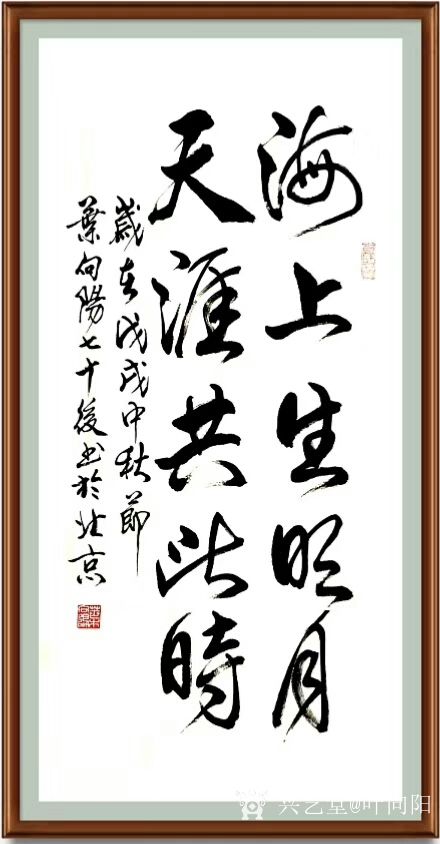 海上生明月
天涯共此時
歲在戊戌中秋節
葉向陽七十後書於北京
兴艺堂@叶向阳